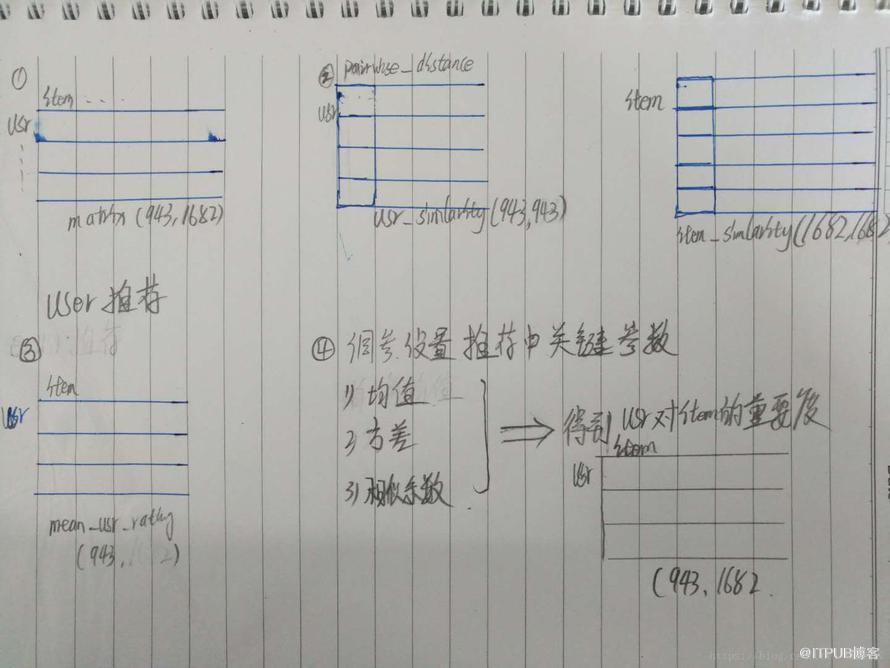 ①
item ...
usr
matrix (943,1682)
② pairwise_distance
usr
usr_similarity(943,943)
item
item_similarity(1682,1682
user 推荐
③
item
usr
mean_usr_rating
(943,
④ 调参.设置推荐中关键参数
1) 均值
2) 方差
3) 相似系数
⇒ 得到 usr对item的重要度
item
usr
(943,1682.
@ITPUB博客